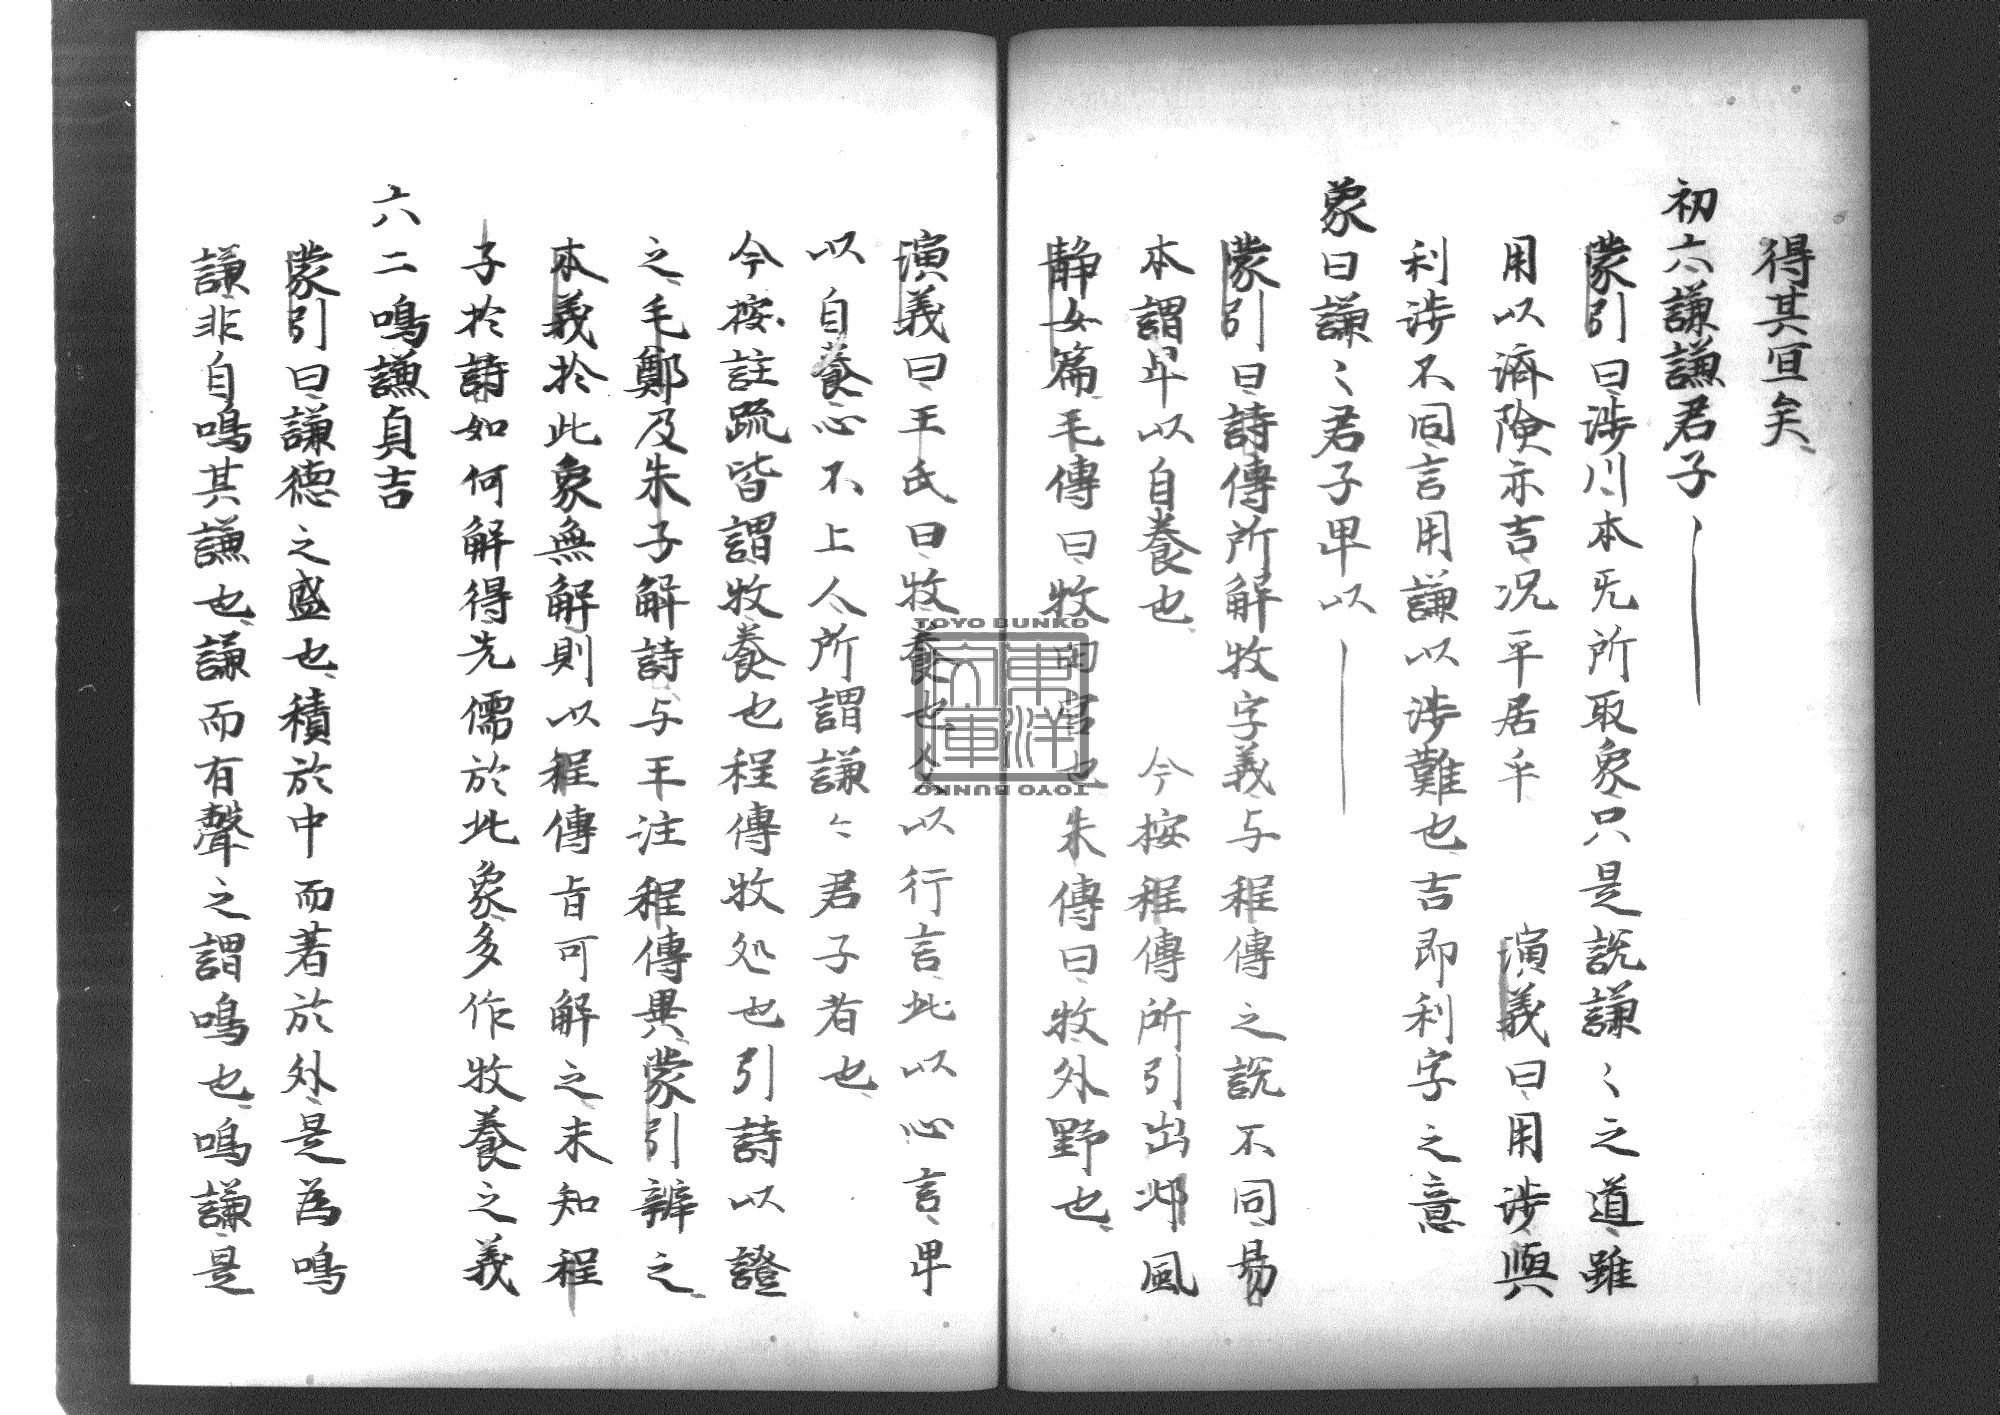 得其宜矣
初六謙謙君子――
蒙引曰涉川本旡所取象只是說謙〻之道雖
用以濟險亦吉况平居乎　演義曰用涉與
利涉不同言用謙以涉難也吉即利字之意
象曰謙〻君子卑以――
蒙引曰詩傳所解牧字義与程傳之說不同易
本謂卑以自養也　今按程傳所引出邶風
靜女篇毛傳曰牧田官也朱傳曰牧外野也
演義曰王氏曰牧養也人以行言此以心言卑
以自養心不上人所謂謙〻君子者也
今按註疏皆謂牧養也程傳牧処也引詩以證
之毛鄭及朱子解詩与王注程傳異蒙引辨之
本義於此象無解則以程傳旨可解之未知程
子於詩如何解得先儒於此象多作牧養之義
六二鳴謙貞吉
蒙引曰謙德之盛也積於中而著於外是為鳴
謙非自鳴其謙也謙而有聲之謂鳴也鳴謙是
TOYO BUNKO
東洋文庫
TOYO BUNKO